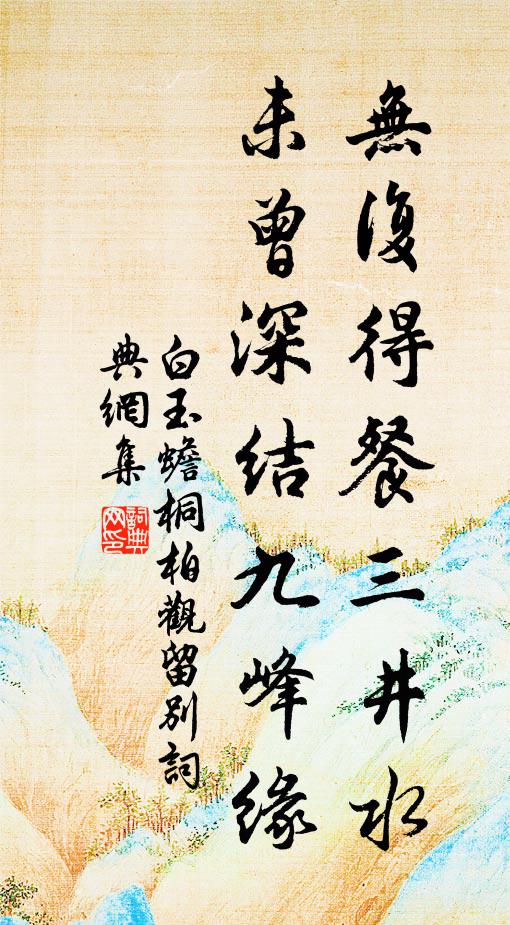 無復得餐三井水
未曾深結九峰緣
白玉蟾桐柏觀留別詞
典網集
詞典網印